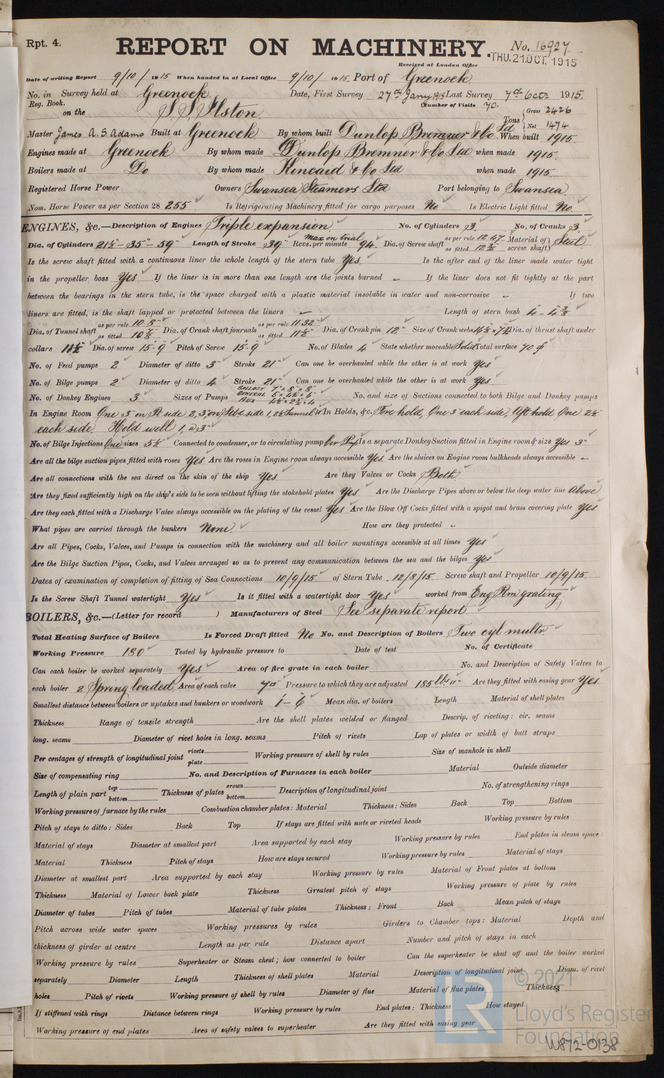 Rpt. 4.
REPORT ON MACHINERY.
No. 16927
Received at London Office
THU. 21 OCT. 1915
Date of writing Report 9/10/1915 When handed in at Local Office 9/10/1915 Port of Greenock
No. in Survey held at Greenock Date, First Survey 27th Jany Last Survey 7th Oct 1915
Reg. Book. (Number of Visits 70.
on the S.S. Ilston
Tons Gross 2426 Net 1474
Master James A. S. Adams Built at Greenock By whom built Dunlop Bremner & Co Ltd When built 1915.
Engines made at Greenock By whom made Dunlop Bremner & Co Ltd when made 1915.
Boilers made at Do By whom made Kincaid & Co Ltd when made 1915
Registered Horse Power Owners Swansea Steamers Ltd Port belonging to Swansea
Nom. Horse Power as per Section 28 255 Is Refrigerating Machinery fitted for cargo purposes No Is Electric Light fitted No
ENGINES, &c.—Description of Engines Triple expansion No. of Cylinders 3 No. of Cranks 3
Dia. of Cylinders 21½-35-59 Length of Stroke 39 Revs. per minute Max on trial 94 Dia. of Screw shaft as per rule 12.67 as fitted Material of screw shaft Steel
Is the screw shaft fitted with a continuous liner the whole length of the stern tube Yes Is the after end of the liner made water tight
in the propeller boss Yes If the liner is in more than one length are the joints burned If the liner does not fit tightly at the part
between the bearings in the stern tube, is the space charged with a plastic material insoluble in water and non-corrosive If two
liners are fitted, is the shaft lapped or protected between the liners Length of stern bush
Dia. of Tunnel shaft as per rule 10.5 as fitted Dia. of Crank shaft journals as per rule 11.32 as fitted Dia. of Crank pin 12 Size of Crank webs Dia. of thrust shaft under
collars Dia. of screw 15-9 Pitch of Screw 15-9 No. of Blades 4 State whether moveable Solid Total surface 70
No. of Feed pumps 2 Diameter of ditto 3 Stroke 21 Can one be overhauled while the other is at work Yes
No. of Bilge pumps 2 Diameter of ditto 4 Stroke 21 Can one be overhauled while the other is at work Yes
No. of Donkey Engines 3 Sizes of Pumps No. and size of Suctions connected to both Bilge and Donkey pumps
In Engine Room One 3 in P. side 2, 3 on side 1, Tunnel In Holds, &c. Fore hold, One 3 each side, Aft hold One
each side Hold well 1,
No. of Bilge Injections One sizes Connected to condenser, or to circulating pump Is a separate Donkey Suction fitted in Engine room & size Yes 3
Are all the bilge suction pipes fitted with roses Yes Are the roses in Engine room always accessible Yes Are the sluices on Engine room bulkheads always accessible
Are all connections with the sea direct on the skin of the ship Yes Are they Valves or Cocks Both
Are they fixed sufficiently high on the ship's side to be seen without lifting the stokehold plates Yes Are the Discharge Pipes above or below the deep water line Above
Are they each fitted with a Discharge Valve always accessible on the plating of the vessel Yes Are the Blow Off Cocks fitted with a spigot and brass covering plate Yes
What pipes are carried through the bunkers None How are they protected
Are all Pipes, Cocks, Valves, and Pumps in connection with the machinery and all boiler mountings accessible at all times Yes
Are the Bilge Suction Pipes, Cocks, Valves arranged so as to prevent any communication between the sea and the bilges Yes
Dates of examination of completion of fitting of Sea Connections 10/9/15 of Stern Tube 12/8/15 Screw shaft and Propeller 10/9/15
Is the Screw Shaft Tunnel watertight Yes Is it fitted with a watertight door Yes worked from Eng Rm grating
BOILERS, &c.—(Letter for record ) Manufacturers of Steel See separate report
Total Heating Surface of Boilers Is Forced Draft fitted No No. and Description of Boilers Two cyl multr
Working Pressure 180 Tested by hydraulic pressure to Date of test No. of Certificate
Can each boiler be worked separately Yes Area of fire grate in each boiler No. and Description of Safety Valves to
each boiler 2 Spring loaded Area of each valve Pressure to which they are adjusted 185 lbs Are they fitted with easing gear Yes
Smallest distance between boilers or uptakes and bunkers or woodwork 1-6 Mean dia. of boilers Length Material of shell plates
Thickness Range of tensile strength Are the shell plates welded or flanged Descrip. of riveting: cir. seams
long. seams Diameter of rivet holes in long. seams Pitch of rivets Lap of plates or width of butt straps
Per centages of strength of longitudinal joint rivets plate Working pressure of shell by rules Size of manhole in shell
Size of compensating ring No. and Description of Furnaces in each boiler Material Outside diameter
Length of plain part top bottom Thickness of plates crown bottom Description of longitudinal joint No. of strengthening rings
Working pressure of furnace by the rules Combustion chamber plates: Material Thickness: Sides Back Top Bottom
Pitch of stays to ditto: Sides Back Top If stays are fitted with nuts or riveted heads Working pressure by rules
Material of stays Diameter at smallest part Area supported by each stay Working pressure by rules End plates in steam space:
Material Thickness Pitch of stays How are stays secured Working pressure by rules Material of stays
Diameter at smallest part Area supported by each stay Working pressure by rules Material of Front plates at bottom
Thickness Material of Lower back plate Thickness Greatest pitch of stays Working pressure of plate by rules
Diameter of tubes Pitch of tubes Material of tube plates Thickness: Front Back Mean pitch of stays
Pitch across wide water spaces Working pressures by rules Girders to Chamber tops: Material Depth and
thickness of girder at centre Length as per rule Distance apart Number and pitch of stays in each
Working pressure by rules Superheater or Steam chest; how connected to boiler Can the superheater be shut off and the boiler worked
separately Diameter Length Thickness of shell plates Material Description of longitudinal joint Diam. of rivet
holes Pitch of rivets Working pressure of shell by rules Diameter of flue Material of flue plates Thickness
If stiffened with rings Distance between rings Working pressure by rules End plates: Thickness How stayed
Working pressure of end plates Area of safety valves to superheater Are they fitted with easing gear
© 2021
Lloyd's Register
Foundation
W872-0138